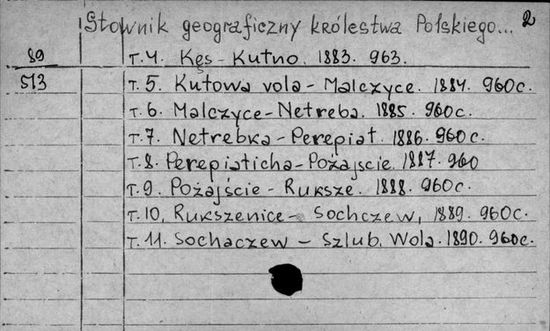 Słownik geograficzny królestwa Polskiego... 2
89 т.4. Kęs - Kutno. 1883. 963.
513 т.5. Kutowa vola - Malczyce. 1884. 960c.
т.6. Malczyce - Netreba. 1885. 960c.
т.7. Netrebka - Perepiat. 1886. 960c.
т.8. Perepiaticha - Pożajscie. 1887. 960
т.9. Pożajście - Ruksze. 1888. 960c.
т.10, Rukszenice - Sochczew, 1889. 960c.
т.11. Sochaczew - Szlub. Wola. 1890. 960c.